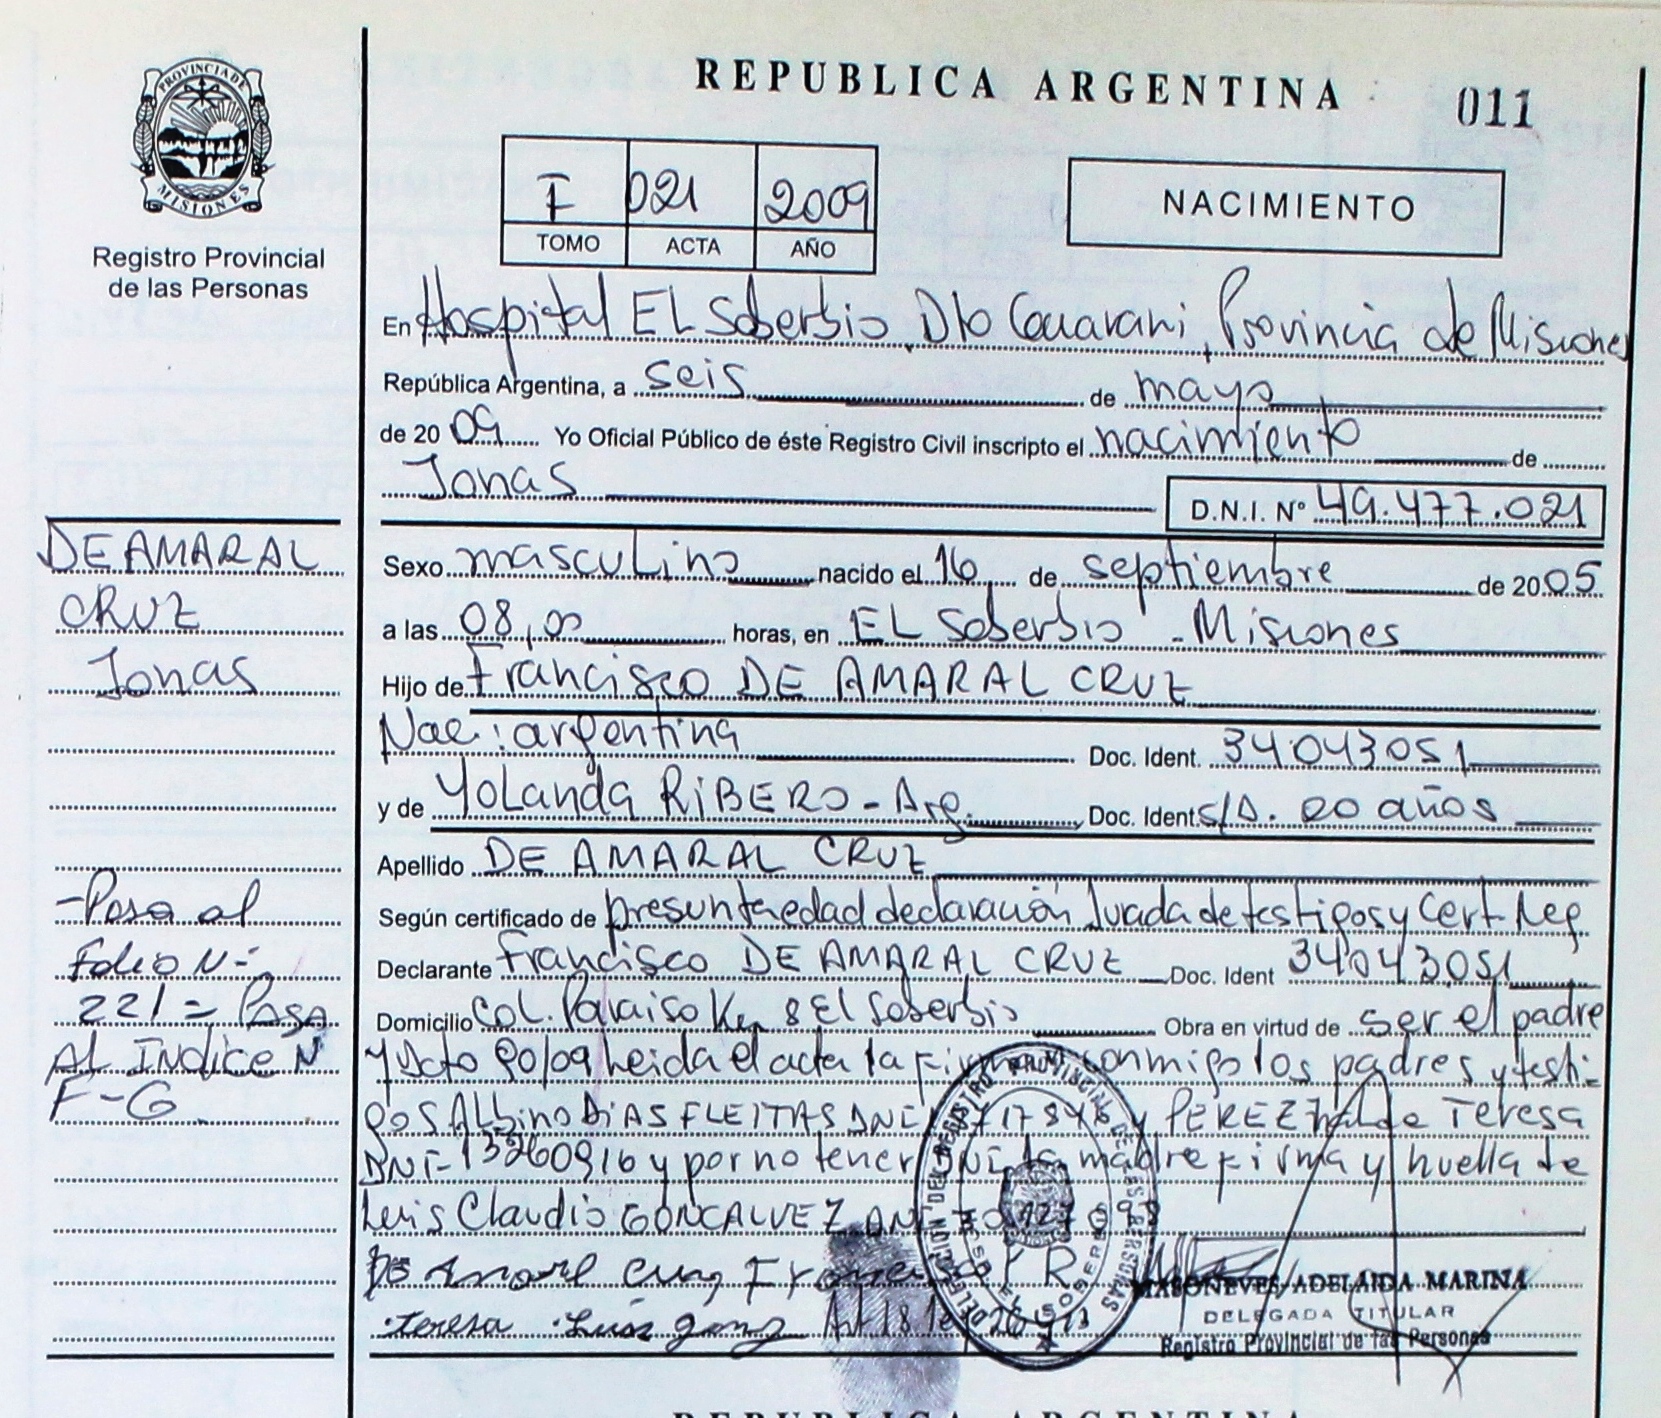 REPUBLICA ARGENTINA
011
PROVINCIA DE
MISIONES
Registro Provincial
de las Personas
I 021 2009
TOMO ACTA AÑO
NACIMIENTO
En Hospital EL Soberbio, Dto Guarani, Provincia de Misiones
República Argentina, a seis de mayo
de 2009 Yo Oficial Público de éste Registro Civil inscripto el nacimiento de
Jonas
D.N.I. Nº 49.477.021
DE AMARAL
CRUZ
Jonas
Sexo masculino nacido el 16 de septiembre de 2005
a las 08,00 horas, en EL Soberbio - Misiones
Hijo de Francisco DE AMARAL CRUZ
Nac: argentina Doc. Ident. 34043051
y de Yolanda RIBERO - Arg. Doc. Ident. S/D. 20 años
Apellido DE AMARAL CRUZ
Según certificado de presunta edad declaración Jurada de testigos y Cert. Neg
Declarante Francisco DE AMARAL CRUZ Doc. Ident 34043051
Domicilio Col. Paraiso Km 8 El Soberbio Obra en virtud de ser el padre
- Pasa al
Folio Nº
221 = Pasa
Al Indice Nº
F-G
y Dcto 90/09 leida el acta la firman conmigo los padres y testi-
gos Albino DIAS FLEITAS DNI y PEREZ Teresa
DNI- 13260916 y por no tener DNI la madre firma y huella de
Luis Claudio GONCALVEZ DNI
De Amaral Cruz Y R
Teresa Luis gonz
MASONEVES ADELAIDA MARINA
DELEGADA TITULAR
Registro Provincial de las Personas
DELEGACION DEL REGISTRO PROVINCIAL DE LAS PERSONAS
EL SOBERBIO
REPUBLICA ARGENTINA